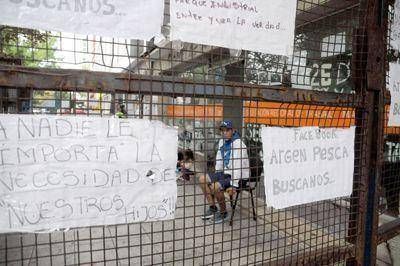 BUSCANOS...
PARQUE INDUSTRIAL
Entre y vea LA VERDAD...
A NADIE LE
IMPORTA LA
NECESIDAD DE
"NUESTROS HIJOS"!!!
FACEBOOK
ARGEN PESCA
BUSCANOS...